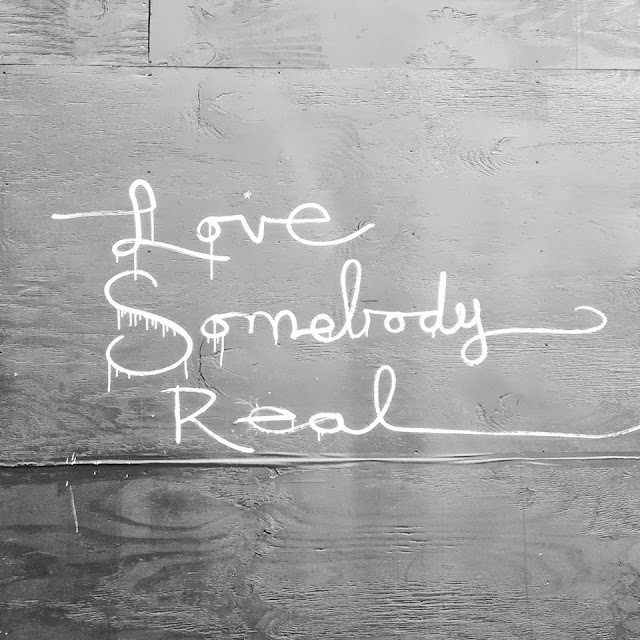 Love
Somebody
Real